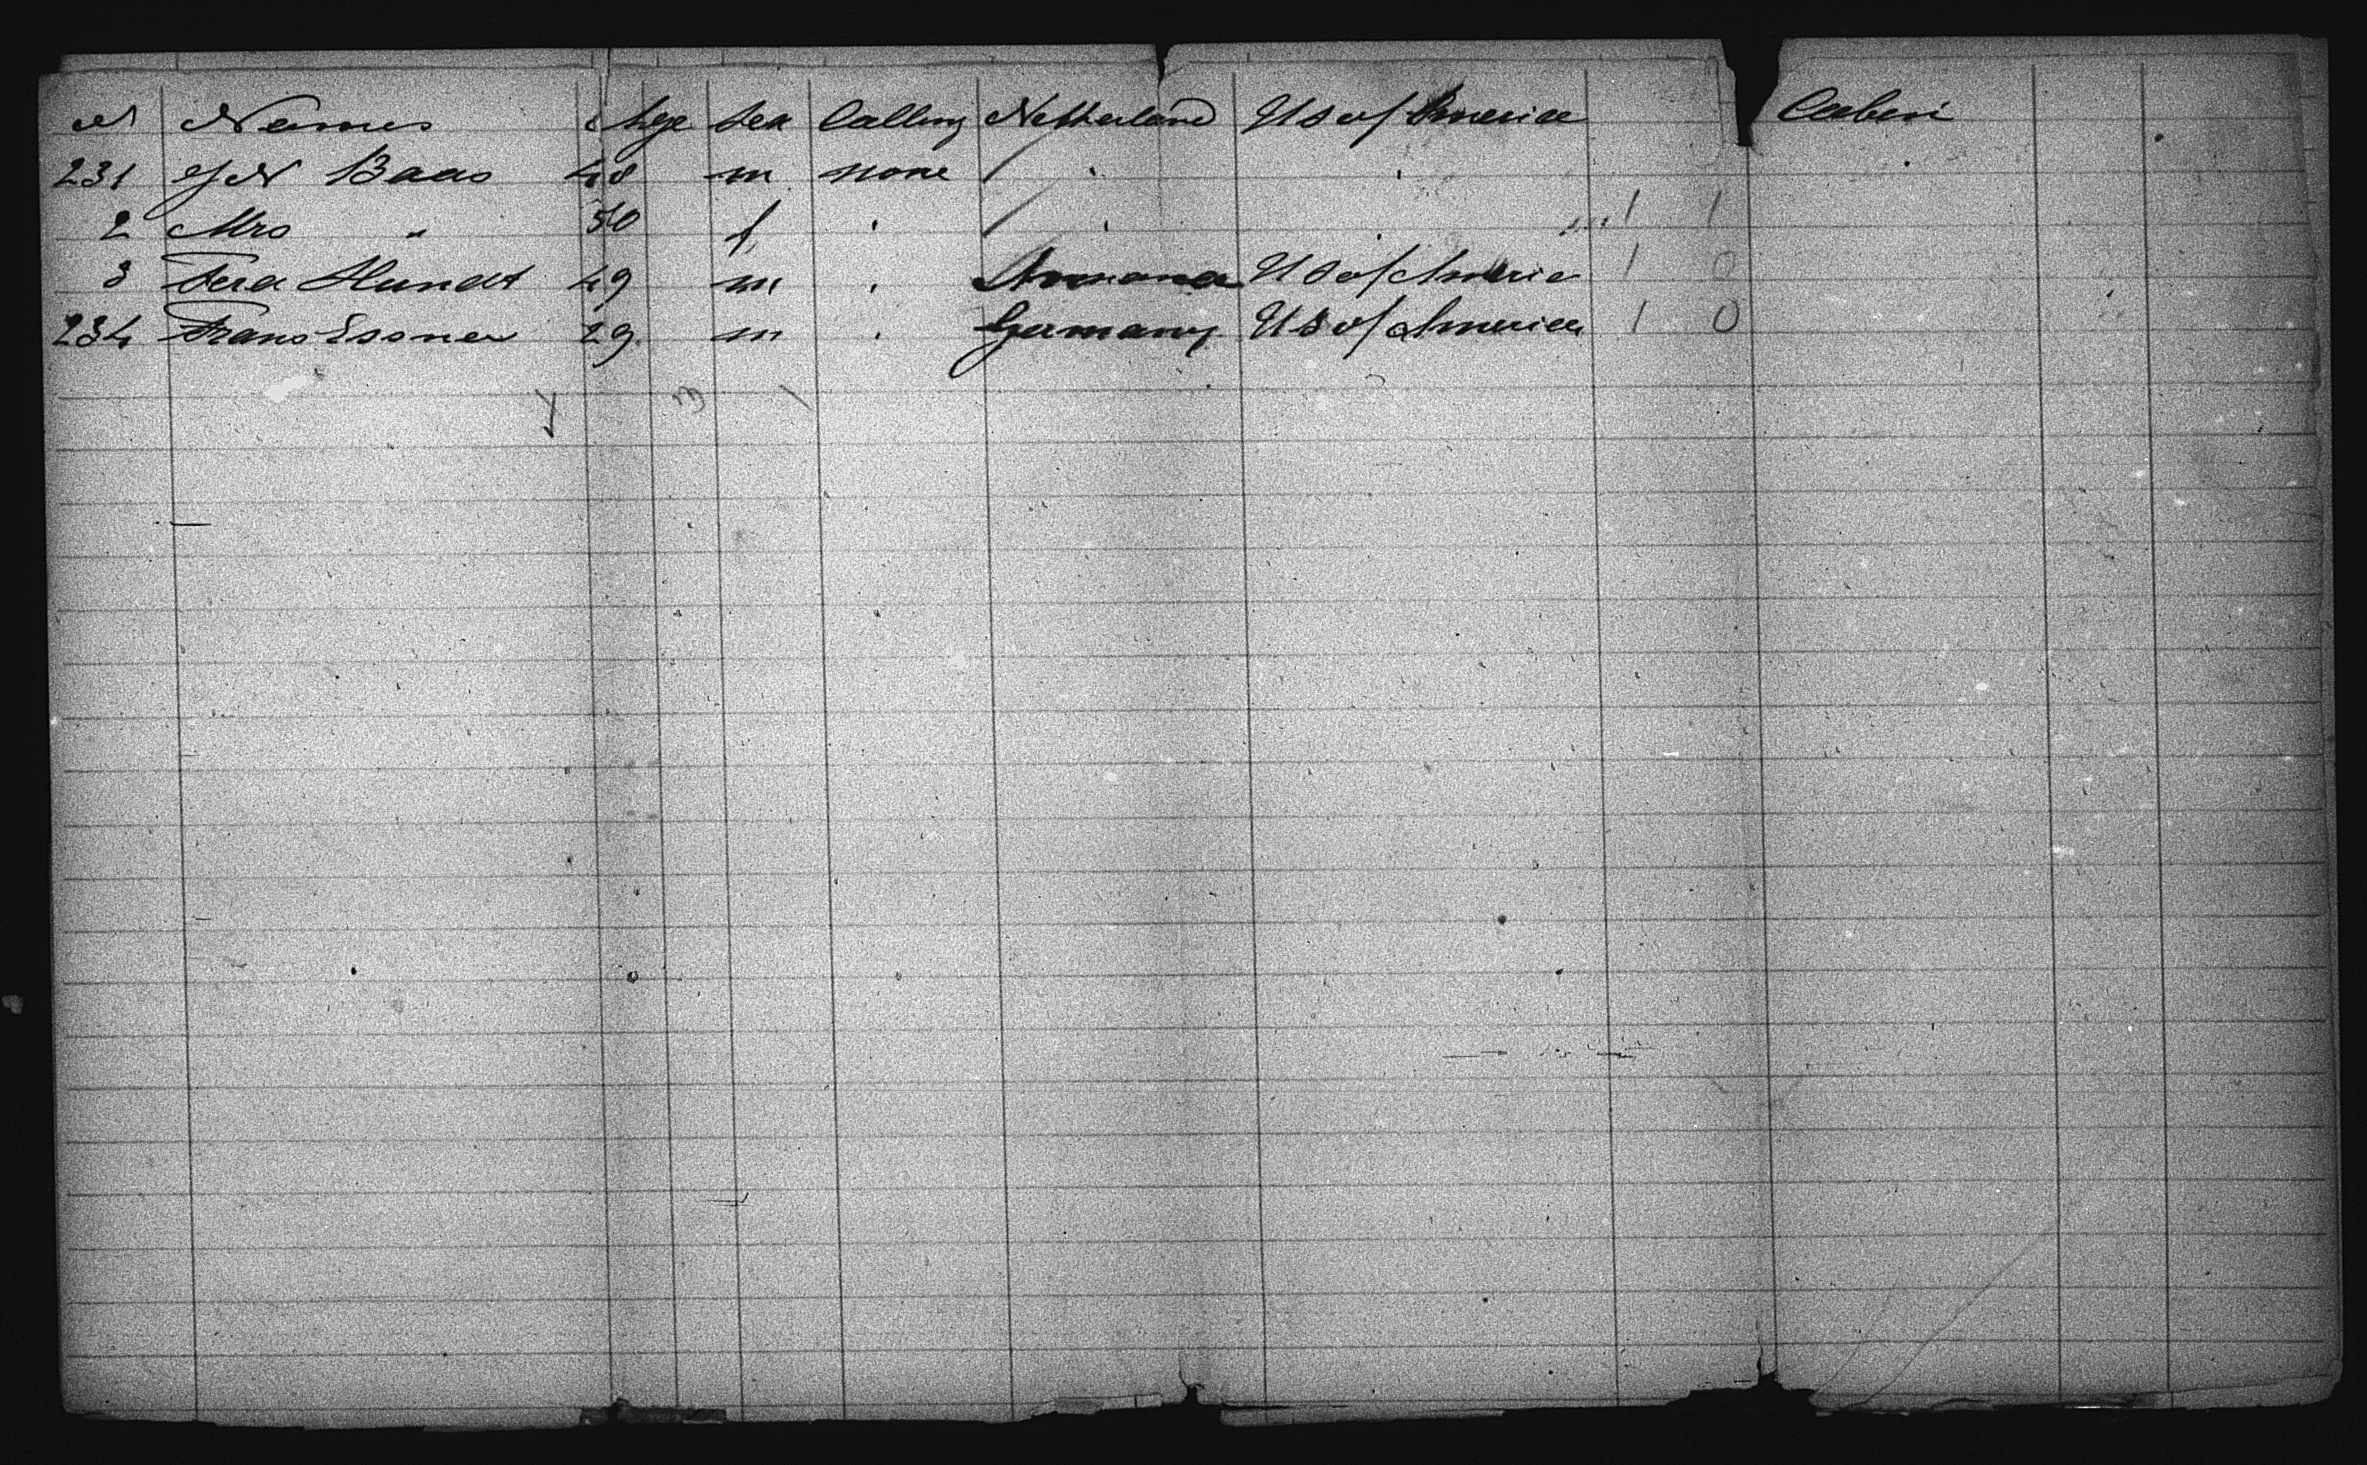 N Names Age Sex Calling Netherland US of America
231 Baas 48 m none / . . .
2 Mrs " 50 f . / . . 1 1
3 Hundt 49 m . US of Americ 1 0
234 Frans Essner 29 m . Germany US of America 1 0